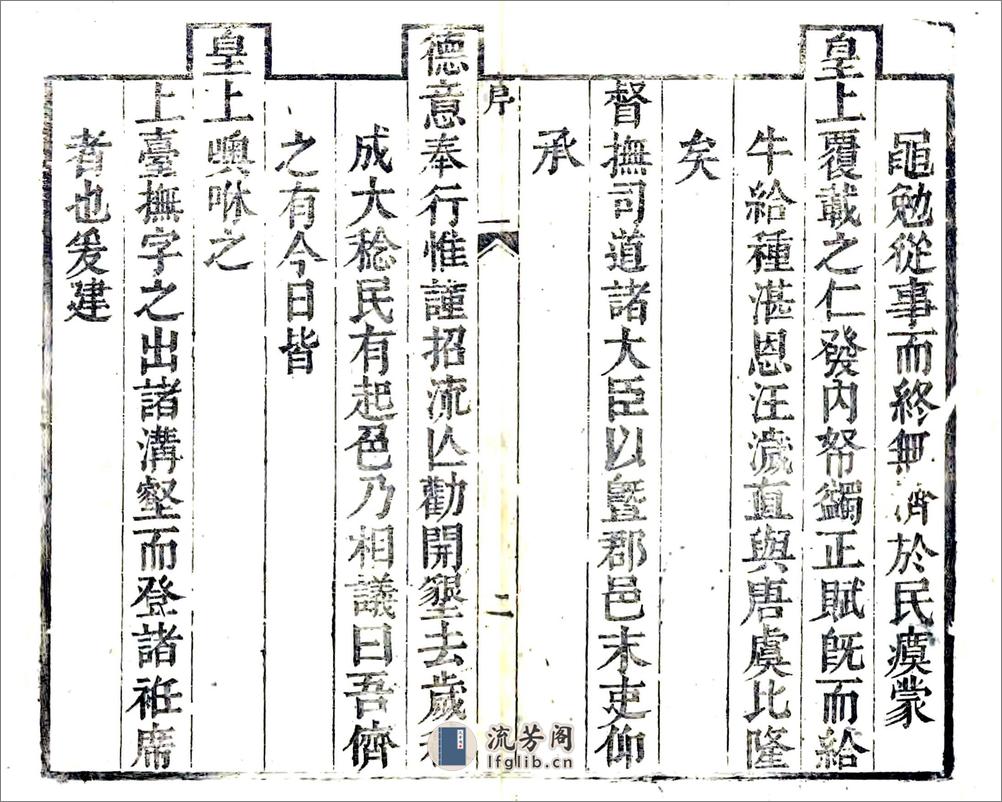 黽勉從事而終無濟於民瘼蒙
皇上覆載之仁發內帑蠲正賦旣而給
牛給種湛恩汪濊直與唐虞比隆
矣
督撫司道諸大臣以曁郡邑末吏仰
承
德意奉行惟謹招流亾勸開墾去歲
序
二
成大稔民有起色乃相議曰吾儕
之有今日皆
皇上噢咻之
上臺撫字之出諸溝壑而登諸袵席
者也爰建
流芳阁
lfglib.cn